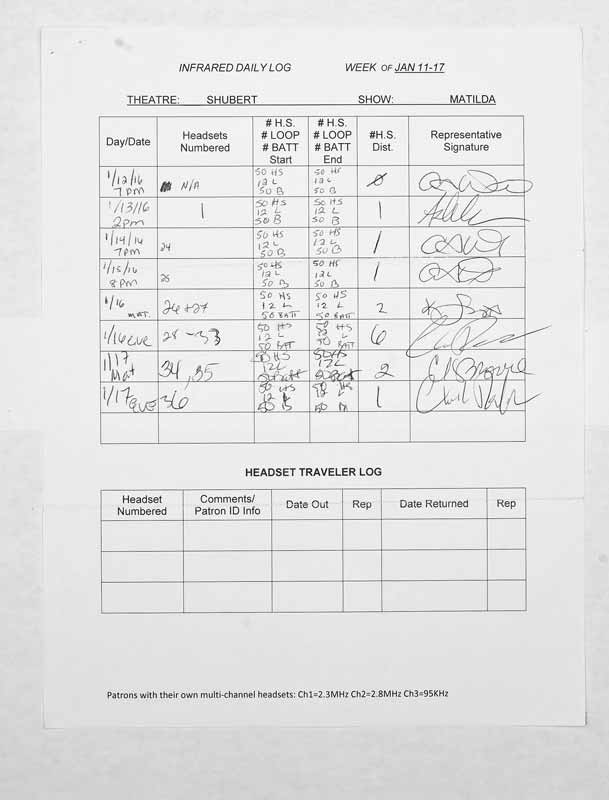 INFRARED DAILY LOG WEEK OF JAN 11-17
THEATRE: SHUBERT SHOW: MATILDA
Day/Date
Headsets
Numbered
# H.S.
# LOOP
# BATT
Start
# H.S.
# LOOP
# BATT
End
#H.S.
Dist.
Representative
Signature
1/12/16
7pm
N/A
50 HS
12 L
50 B
50 HS
12 L
50 B
0
1/13/16
2pm
1
50 HS
12 L
50 B
50 HS
12 L
50 B
1
1/14/16
7pm
24
50 HS
12 L
50 B
50 HS
12 L
50 B
1
1/15/16
8pm
25
50 HS
12 L
50 B
50 HS
12 L
50 B
1
1/16
mat.
26+27
50 HS
12 L
50 BATT
50 HS
12 L
50 BATT
2
1/16 eve
28-33
50 HS
12 L
50 BATT
50 HS
12 L
50 BATT
6
1/17
Mat
34, 35
50 HS
12L
50 Batt
50 HS
12L
50 Batt
2
1/17 eve
36
50 HS
12 L
50 B
50 HS
12 L
50 B
1
HEADSET TRAVELER LOG
Headset
Numbered
Comments/
Patron ID Info
Date Out
Rep
Date Returned
Rep
Patrons with their own multi-channel headsets: Ch1=2.3MHz Ch2=2.8MHz Ch3=95KHz